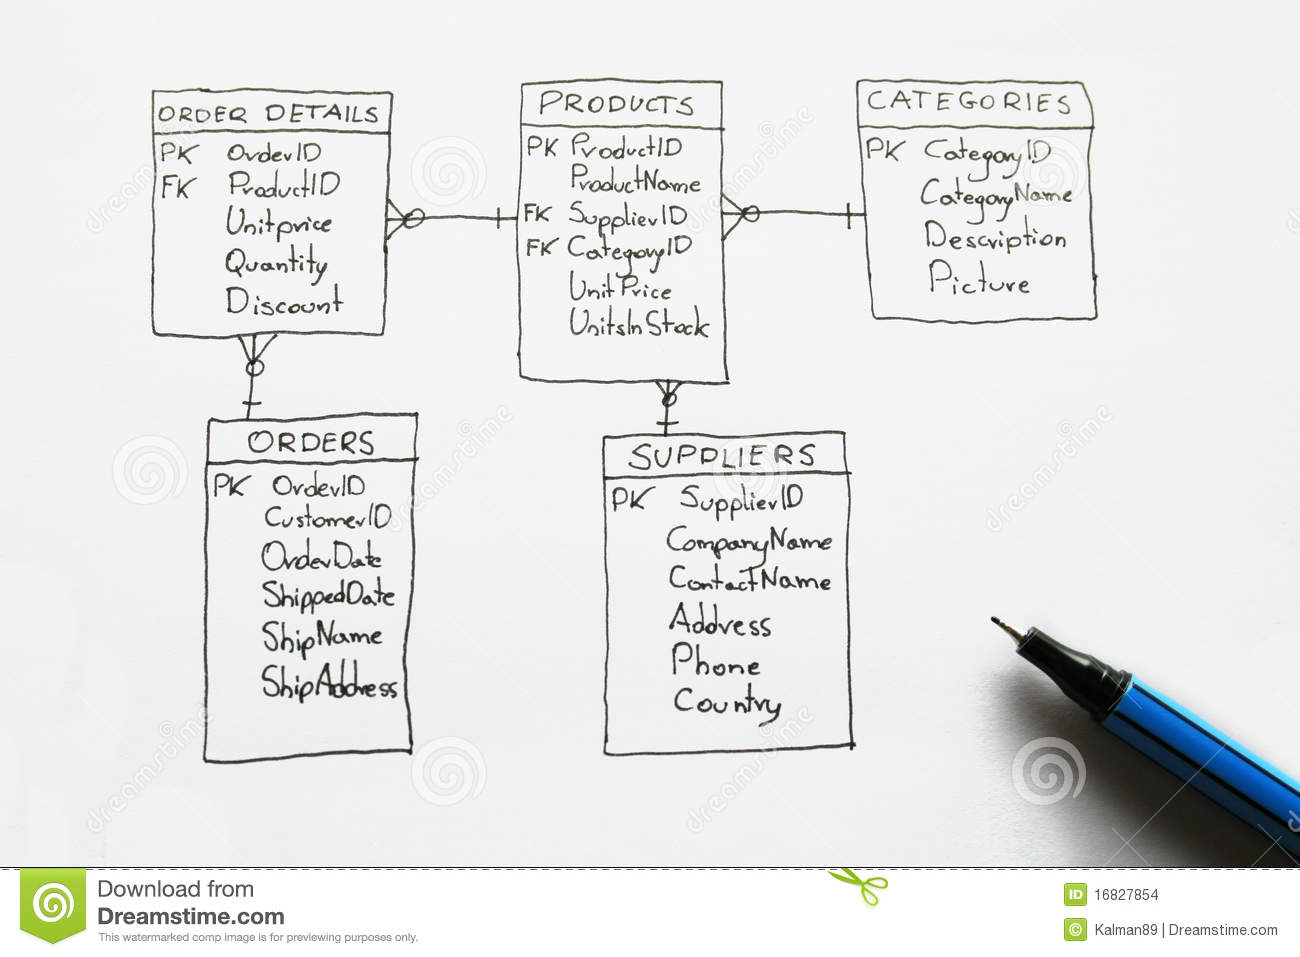 ORDER DETAILS
PK OrderID
FK ProductID
Unitprice
Quantity
Discount
PRODUCTS
PK ProductID
ProductName
FK SupplierID
FK CategoryID
UnitPrice
UnitsInStock
CATEGORIES
PK CategoryID
CategoryName
Description
Picture
ORDERS
PK OrderID
CustomerID
OrderDate
ShippedDate
ShipName
ShipAddress
SUPPLIERS
PK SupplierID
CompanyName
ContactName
Address
Phone
Country
dreamstime
Download from
Dreamstime.com
This watermarked comp image is for previewing purposes only.
ID 16827854
© Kalman89 | Dreamstime.com